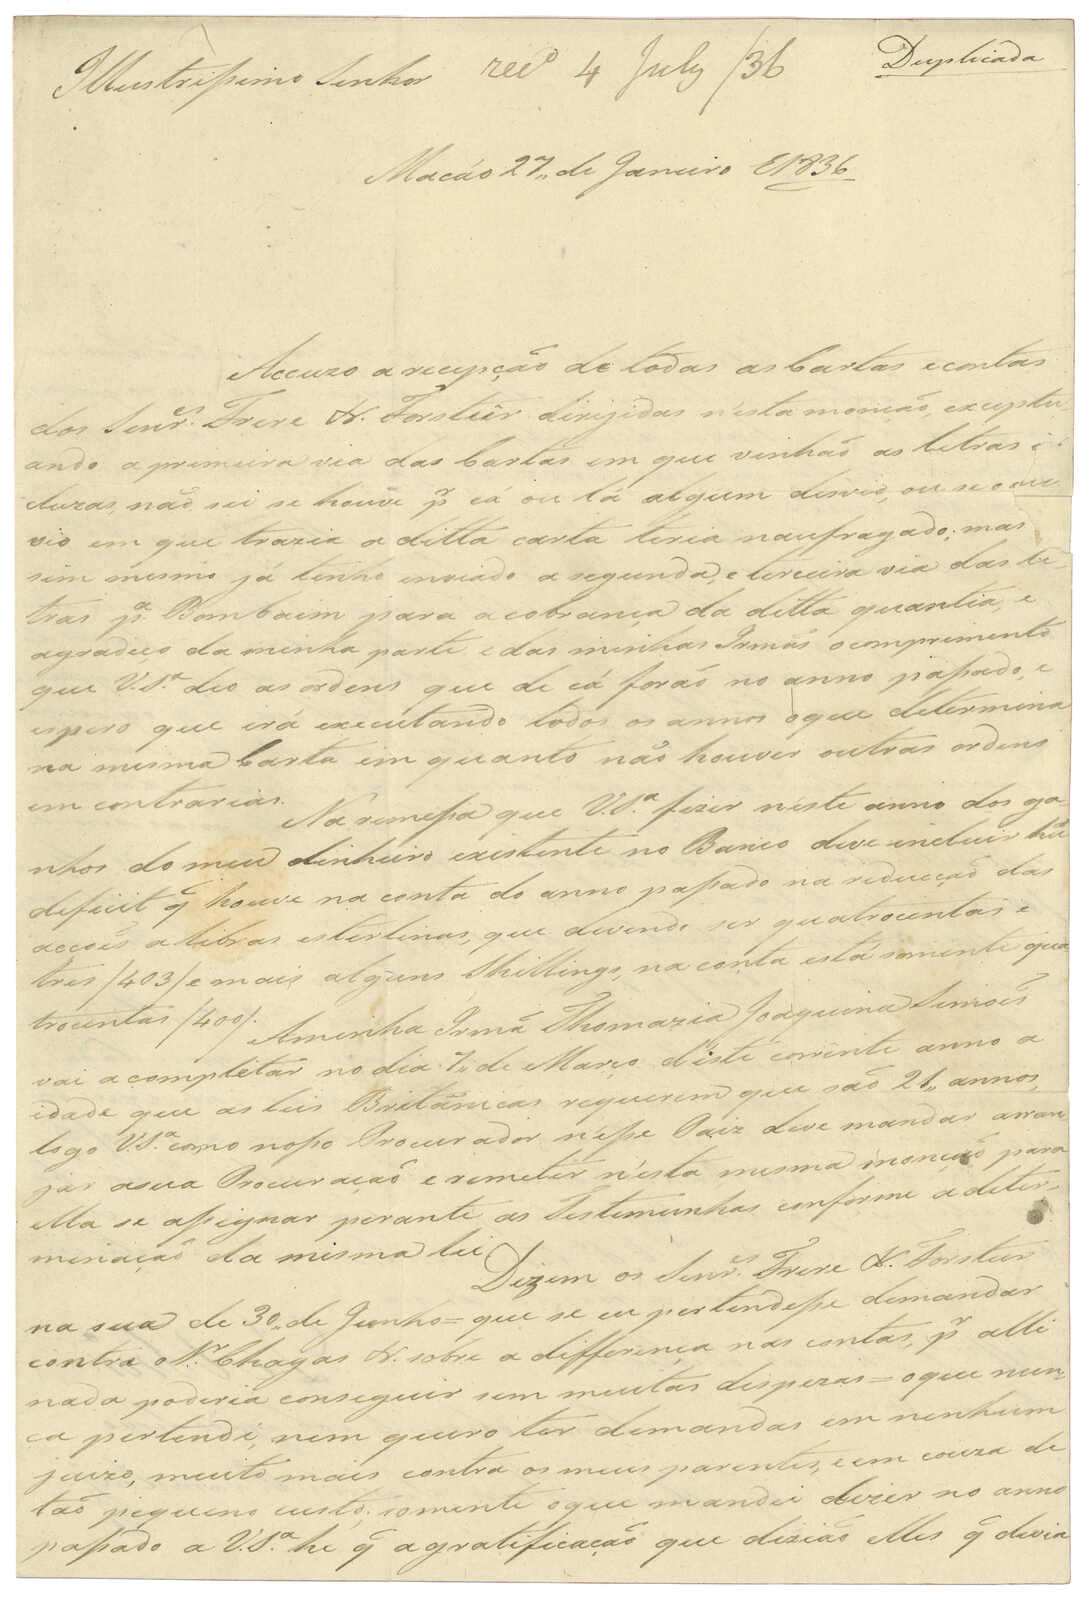 Illustrissimo Senhor recd 4 July /36 Duplicada
Macáo 27,, de Janeiro E1836
Accuzo a recepção de todas as Cartas e contas
dos Senrs. Frere & Forstêr dirijidas n'esta monção, exceptu-
ando a primeira via das Cartas em que vinhão as letras i
cluzas, não sei se houve pr cá ou lá algum desvio, ou se o na-
vio em que trazia a ditta carta teria naufragado; mas
sim mesmo já tenho enviado a segunda, e terceira via das le-
tras pa. Bombaim para a cobrança da ditta quantia, e
agradeço da minha parte e das minhas Irmãs o comprimento
que V.Sa. deo as ordens que de cá forão no anno passado, e
espero que irá executando todos os annos o que determina
na mesma Carta em quanto não houver outras ordens
em contrarias.
Na remessa que V.Sa. fizer n'este anno dos ga-
nhos do meu dinheiro existente no Banco deve incluir hũ
deficit q̃ houve na conta do anno passado na reducção das
acções a libras esterlinas, que devendo ser quatrocentas e
tres /403/ e mais algũns Shillings, na conta está somente qua
trocentas /400/.
A minha Irmã Thomazia Joaquina Simões
vai a completar no dia 7,, de Março d'este corrente anno a
idade que as leis Britânicas requerem que são 21,, annos,
logo V.Sa. como nosso Procurador n'esse Paiz deve mandar arran
jar a sua Procuração e remeter n'esta mesma monção para
ella se assignar perante as Testemunhas conforme a deter-
minação da mesma lei
Dizem os Senrs. Frere & Forster
na sua de 30,, de Junho = que se eu pertendesse demandar
contra o Nr. Chagas & sobre a differença nas contas, pr alli
nada poderia conseguir sem muitas despezas = o que nun-
ca pertendi, nem quero ter demandas em nenhum
juizo, muito mais contra os meus parentes, e em couza de
tão piqueno custo; somente o que mandei dizer no anno
passado a V.Sa. hé q̃ a gratificação que dizião elles q̃ devia